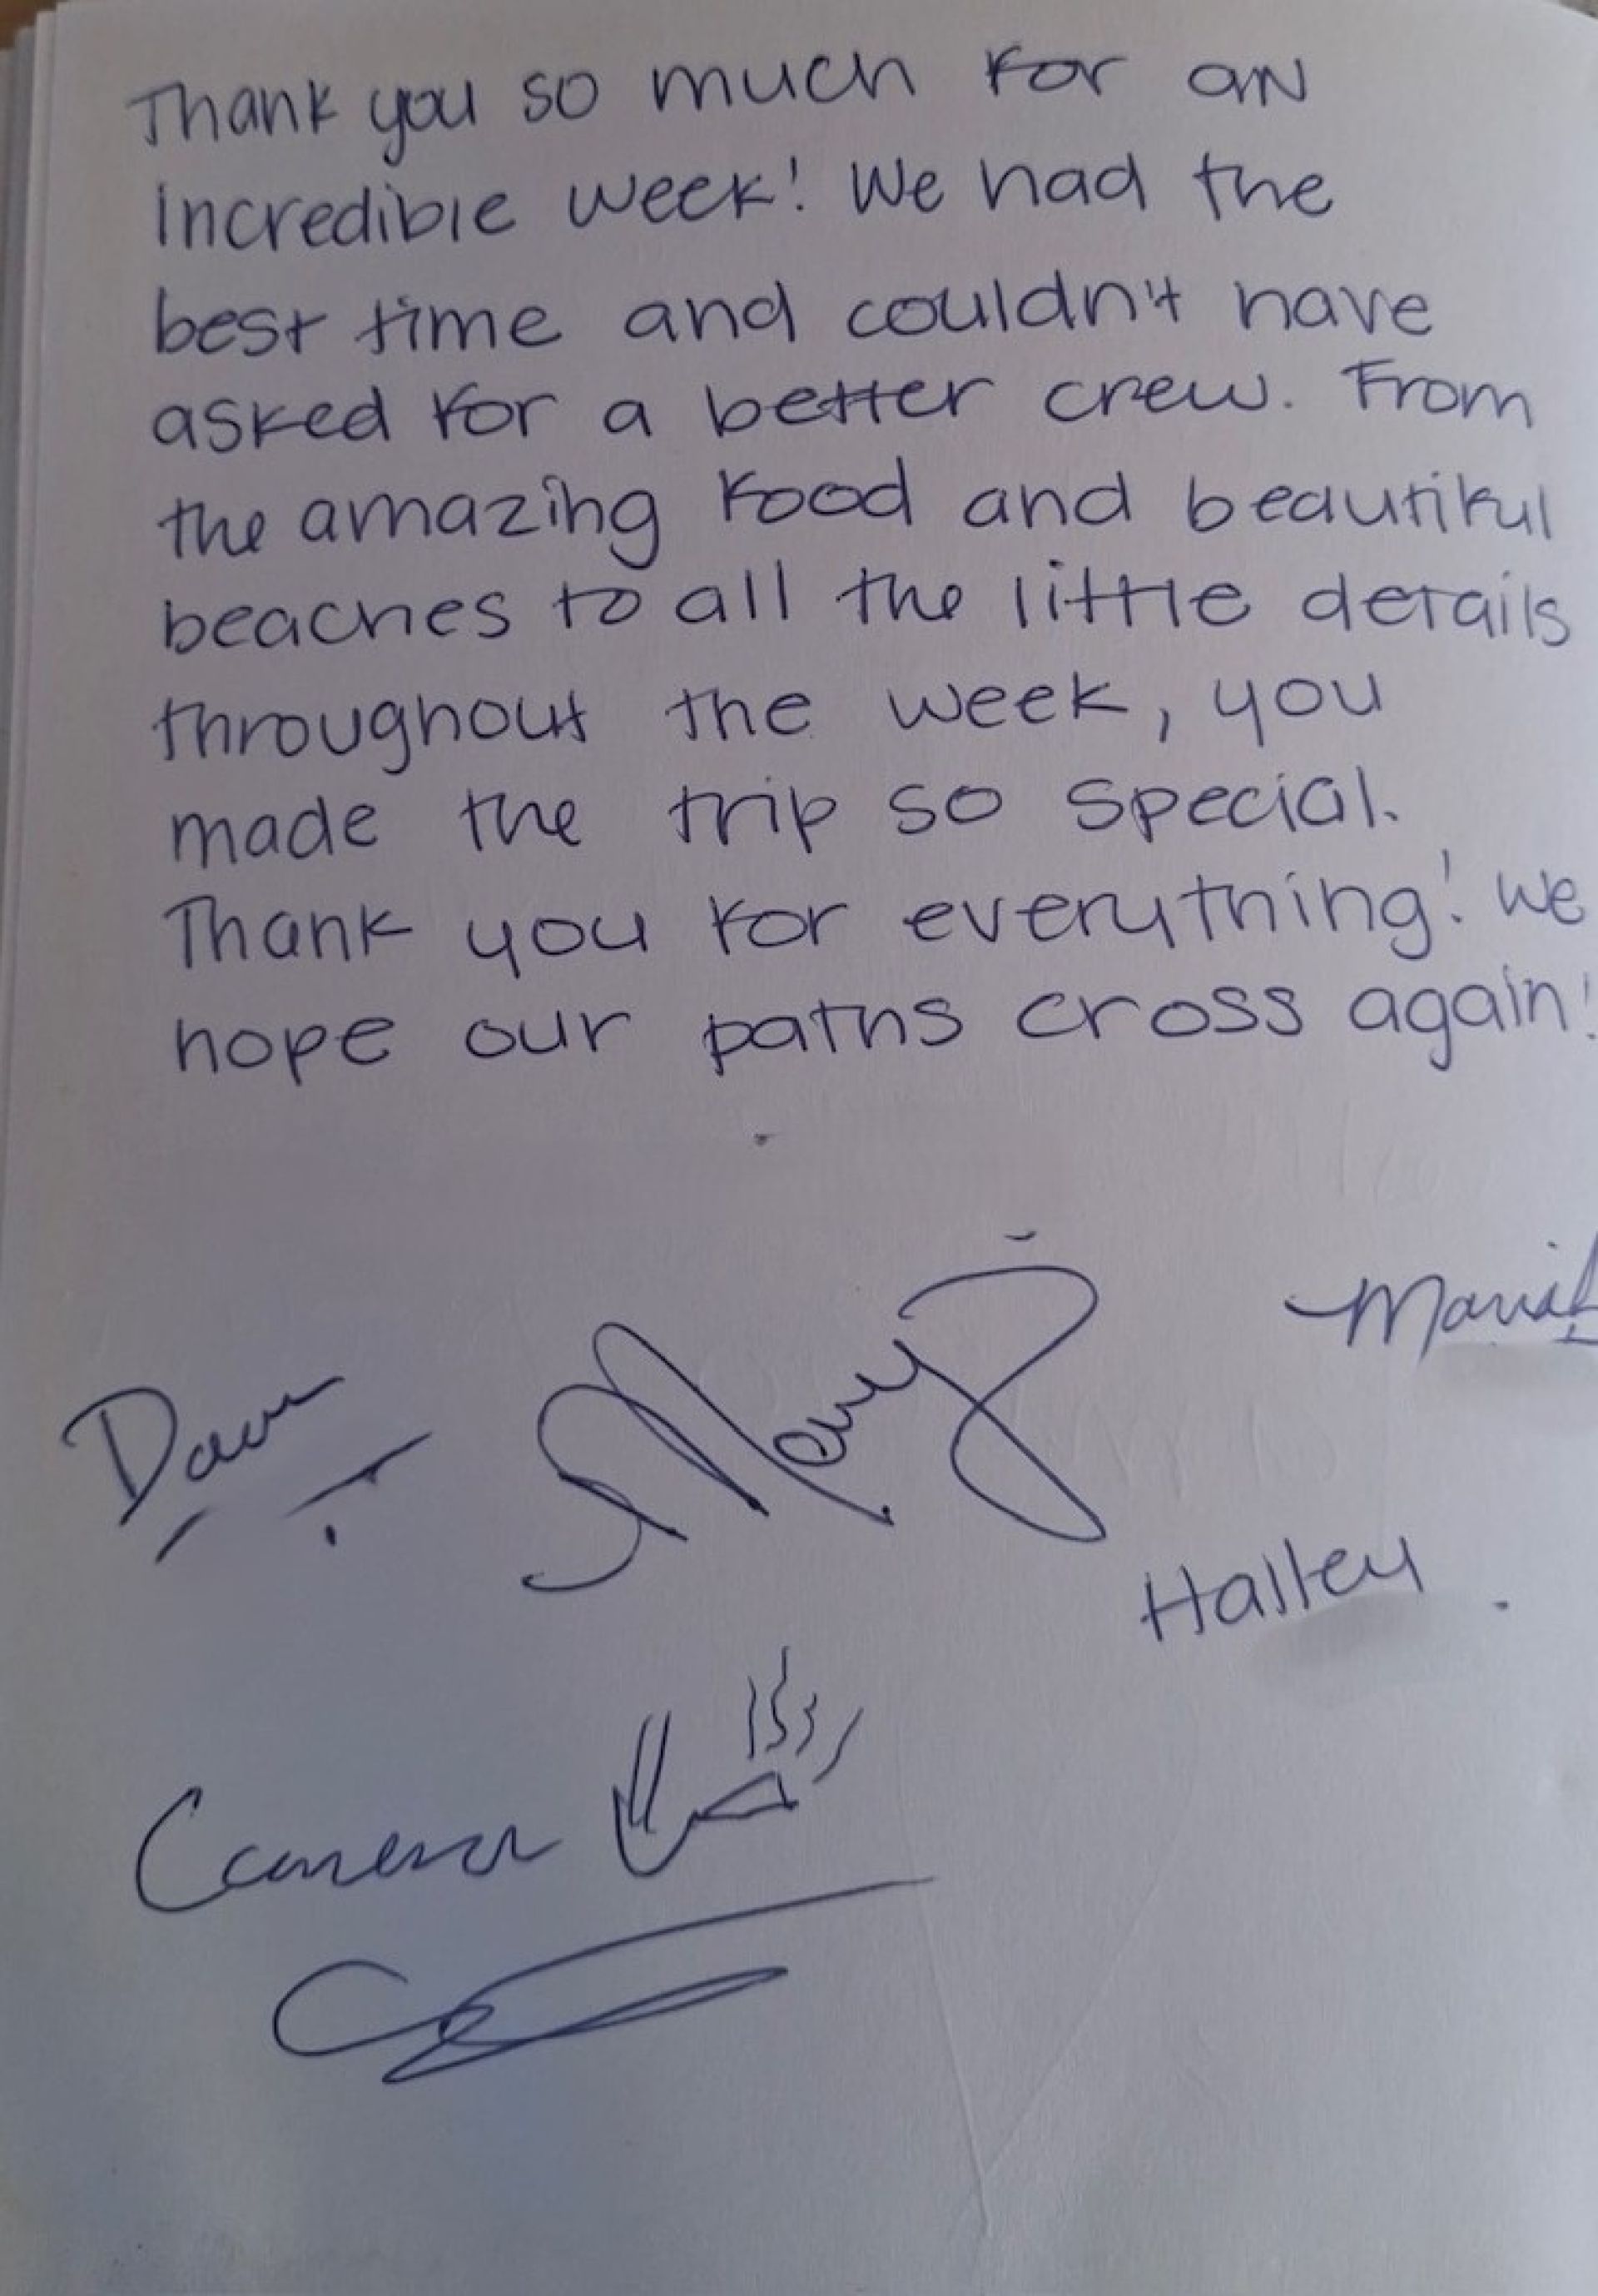 Thank you so much for an
incredible week! We had the
best time and couldn't have
asked for a better crew. From
the amazing food and beautiful
beaches to all the little details
throughout the week, you
made the trip so special.
Thank you for everything! We
hope our paths cross again!
Halley
Cameron